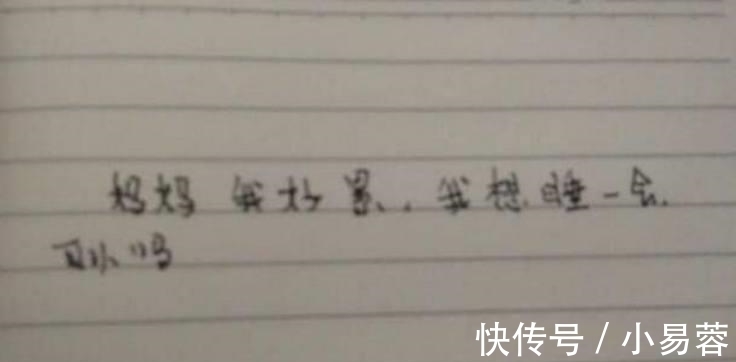 妈妈 我好累.. 我想睡一会.
可以吗
快传号 / 小易蓉